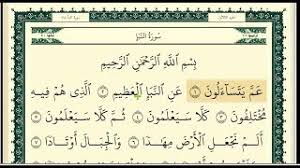 سُورَةُ النَّبَإِ
بِسْمِ اللَّهِ الرَّحْمَٰنِ الرَّحِيمِ
عَمَّ يَتَسَاءَلُونَ ١ عَنِ النَّبَإِ الْعَظِيمِ ٢ الَّذِي هُمْ فِيهِ
مُخْتَلِفُونَ ٣ كَلَّا سَيَعْلَمُونَ ٤ ثُمَّ كَلَّا سَيَعْلَمُونَ ٥
أَلَمْ نَجْعَلِ الْأَرْضَ مِهَادًا ٦ وَالْجِبَالَ أَوْتَادًا ٧